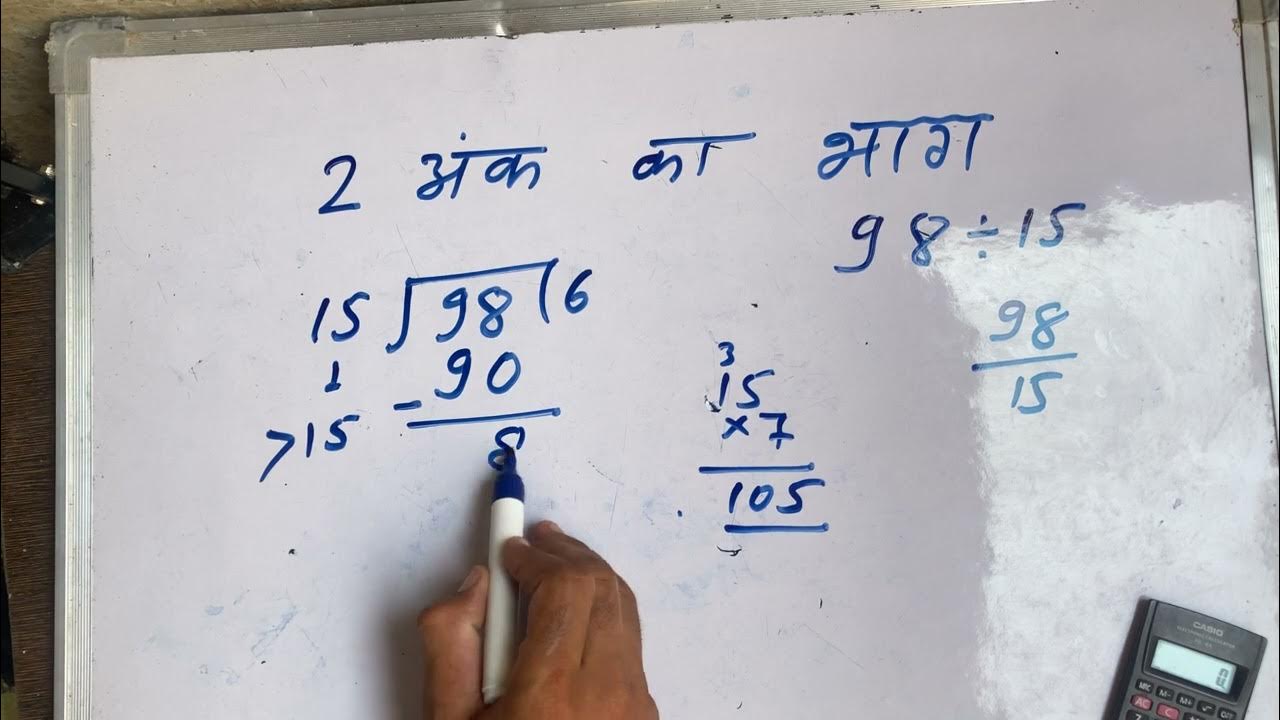 2 अंक का भाग
98÷15
15)98(6
1 -90
>15 8
98
15
3
15
×7
105
CASIO
MC M- M+ √
AC C